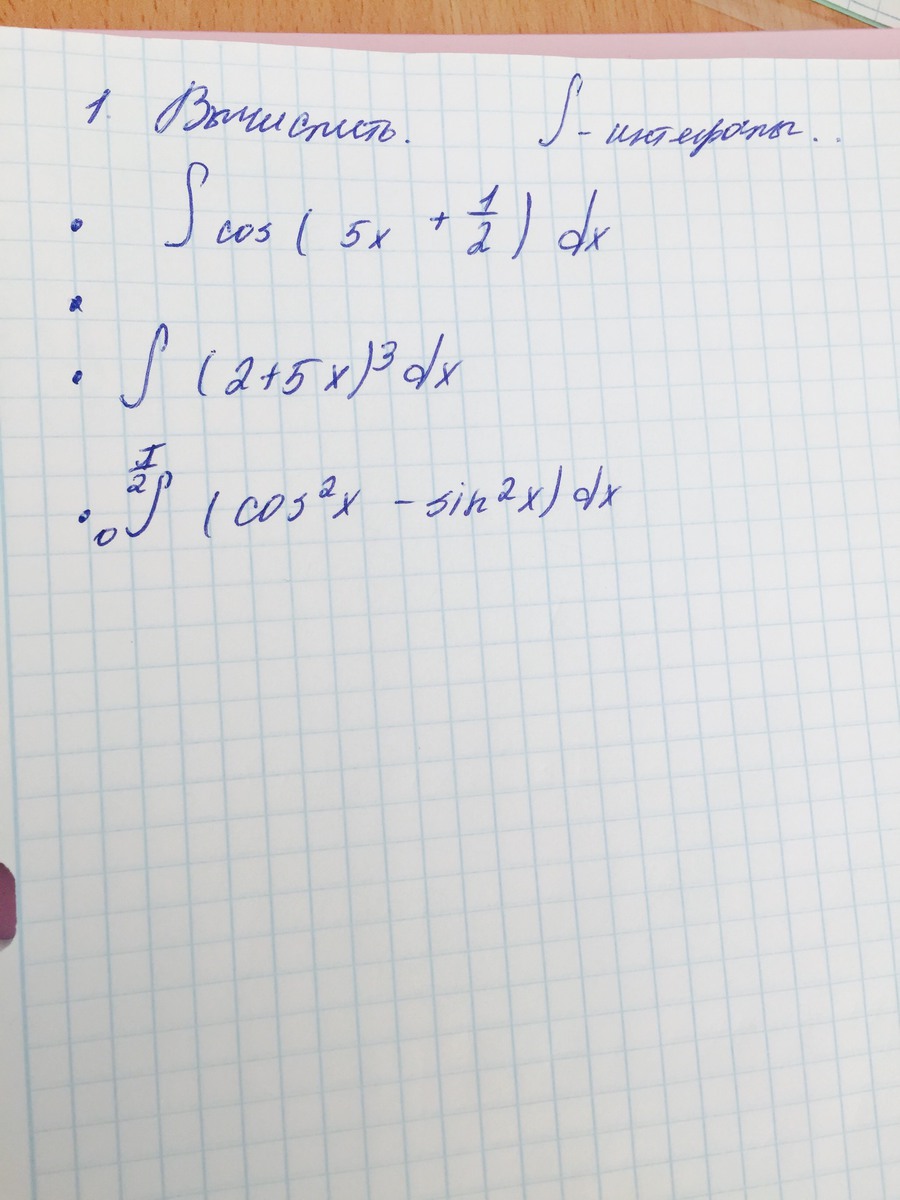 1. Вычислить. ∫ - интегралы..
• ∫ cos ( 5x + 1/2 ) dx
•
• ∫ (2+5x)³ dx
• ₀∫^(π/2) (cos²x - sin²x) dx